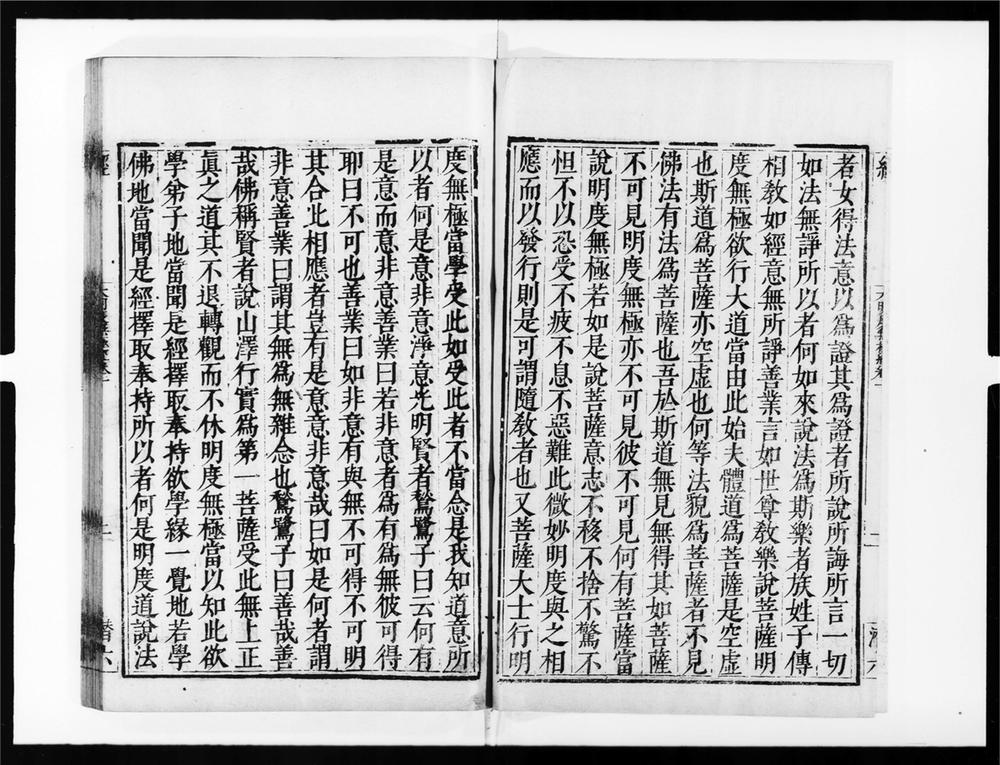 者女得法意以為證其為證者所說所誨所言一切
如法無諍所以者何如來說法為斯樂者族姓子傳
相教如經意無所諍善業言如世尊教樂說菩薩明
度無極欲行大道當由此始夫體道為菩薩是空虛
也斯道為菩薩亦空虛也何等法貌為菩薩者不見
佛法有法為菩薩也吾於斯道無見無得其如菩薩
不可見明度無極亦不可見彼不可見何有菩薩當
說明度無極若如是說菩薩意志不移不捨不驚不
怛不以恐受不疲不息不惡難此微妙明度與之相
應而以發行則是可謂隨教者也又菩薩大士行明
度無極當學受此如受此者不當念是我知道意所
以者何是意非意淨意光明賢者鶖鷺子曰云何有
是意而意非意善業曰若非意者為有為無彼可得
耶曰不可也善業曰如非意有與無不可得不可明
其合此相應者豈有是意意非意哉曰如是何者謂
非意善業曰謂其無為無雜念也鶖鷺子曰善哉善
哉佛稱賢者說山澤行實為第一菩薩受此無上正
眞之道其不退轉觀而不休明度無極當以知此欲
學弟子地當聞是經擇取奉持欲學緣一覺地若學
佛地當聞是經擇取奉持所以者何是明度道說法
經